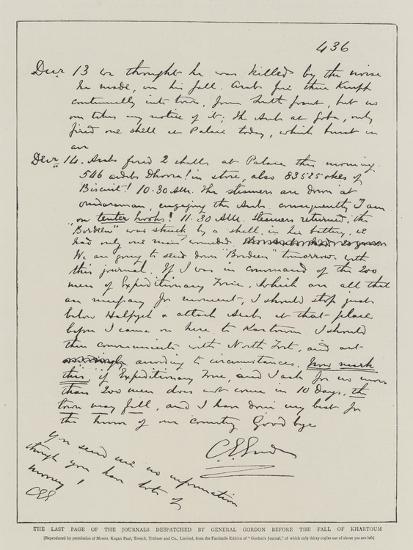 436
Decr 13 we thought he was killed by the noise
he made, in his fall. Arabs fire their Krupp
continually into town, from South front, but no
one takes any notice of it; the Arabs at Goba, only
fired one shell at Palace today, which burst in
air
Decr 14. Arabs fired 2 shells at Palace this morning
546 ardebs Dhoora! in store, also 83525 okes of
Biscuit! 10.30 AM. The steamers are down at
Omdurman, engaging the Arabs, consequently I am
"on tenter hooks! 11.30 AM. Steamers returned, the
Bordeen was struck by a shell, in her battery, we
had only one man wounded
We are going to send down "Bordeen" tomorrow, with
this journal. If I was in command of the 200
men of Expeditionary Force, which are all that
are necessary for movement, I should stop just
below Halfyeh & attack Arabs at that place
before I came on here to Kartoum. I should
then communicate with North Fort, and act
according to circumstances. Now mark
this, if Expeditionary Force, and I ask for no more
than 200 men does not come in 10 days, the
town may fall, and I have done my best for
the honor of our country. Good bye
C G Gordon
You send me no information
though you have lots of
money!
CGG
THE LAST PAGE OF THE JOURNALS DESPATCHED BY GENERAL GORDON BEFORE THE FALL OF KHARTOUM
(Reproduced by permission of Messrs. Kegan Paul, Trench, Trübner and Co., Limited, from the Facsimile Edition of "Gordon's Journal," of which only thirty copies out of eleven you are left)